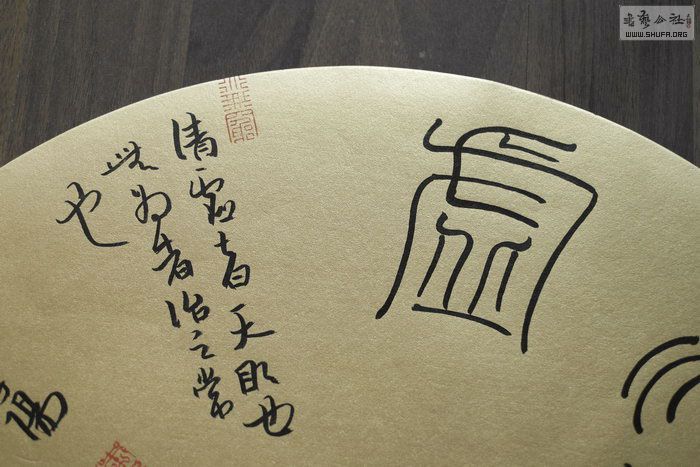 虛
清虛者天明也
無為者治之常
也
書藝公社
WWW.SHUFA.ORG